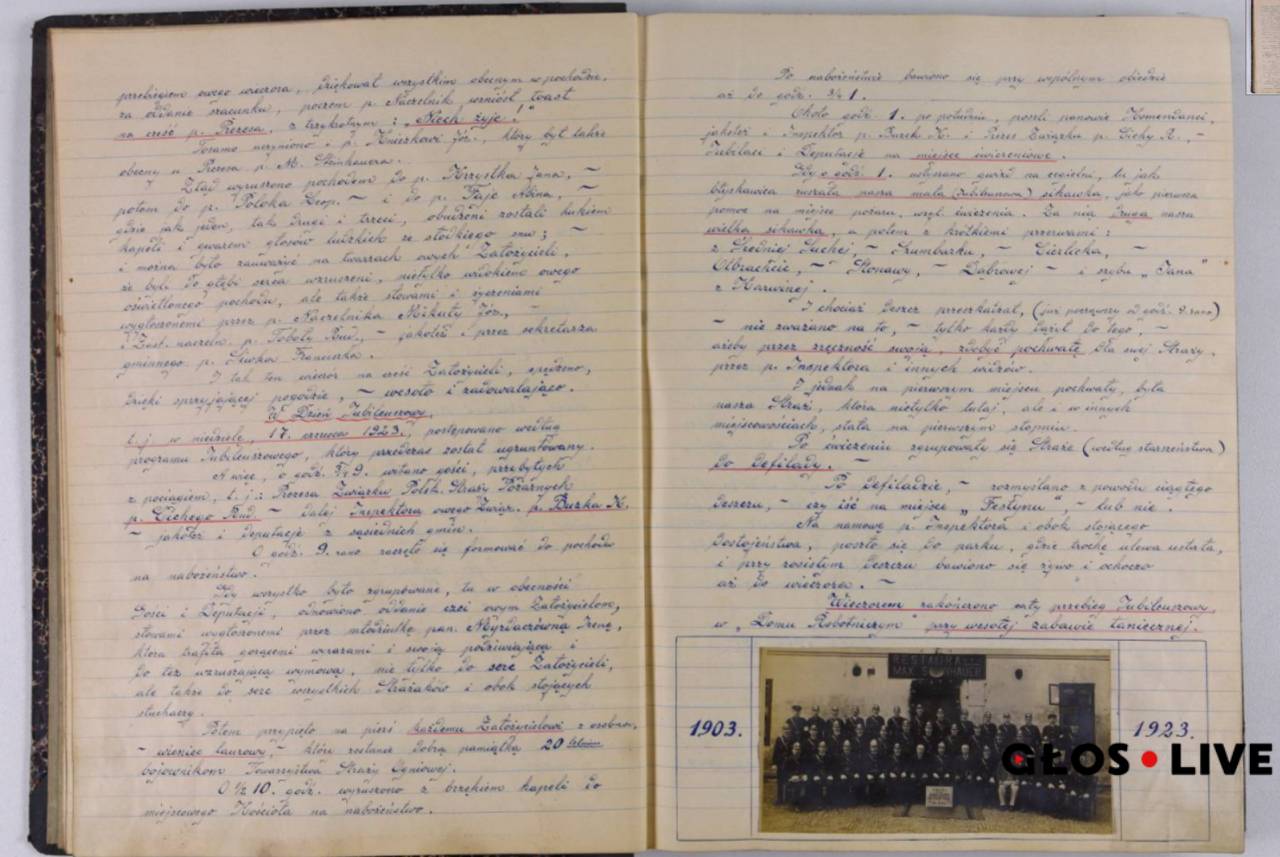 przebiegiem owego wieczora, dziękował wszystkim obecnym w pochodzie,
za oddanie szacunku, poczem p. Naczelnik wzniósł toast
na cześć p. Prezesa, z trzykrotnym: „Niech żyje!"
Tosamo uczyniono i p. Kniezkowi Józ., który był także
obecny u Prezesa p. M. Steinhauera.
Ztąd wyruszono pochodem do p. Krzystka Jana, –
potem do p. Poloka Leop. – i do p. Faje Adina, –
gdzie jak jeden, tak drugi i trzeci, obudzeni zostali hukiem
kapeli i gwarem głosów ludzkich ze słodkiego snu; –
i można było zauważyć na twarzach owych Założycieli,
że byli do głębi serca wzruszeni, nietylko widokiem owego
oświetlonego pochodu, ale także słowami i życzeniami
wygłoszonemi przez p. Naczelnika Mikuły Józ., –
i Zast. naczeln. p. Toboły Rud., – jakoteż i przez sekretarza
gminnego p. Śliwka Franciszka.
I tak ten wieczór na cześć Założycieli, spędzono,
dzięki sprzyjającej pogodzie, – wesoło i zadowalająco.
W Dzień Jubileuszowy,
t. j. w niedzielę, 17. czerwca 1923., postępowano według
programu Jubileuszowego, który przedczas został ugruntowany.
A więc, o godz. 3/4 9. witano gości, przybyłych
z pociągiem, t. j.: Prezesa Związku Polsk. Straży Pożarnych
p. Cichego Rud. – dalej Inspektora owego Związ. p. Buzka K.
– jakoteż i deputacje z sąsiednich gmin.
O godz. 9. rano zaczęło się formować do pochodu
na nabożeństwo.
Gdy wszystko było zgrupowane, tu w obecności
Gości i Deputacji, odnowiono oddanie czci owym Założycielom,
słowami wygłoszonemi przez młodziutką pan. Myrdaczówną Ireną,
która trafiła gorącemi wyrazami i swoją podziwiającą i
do łez wzruszającą wymową, nie tylko do serc Założycieli,
ale także do serc wszystkich Strażaków i obok stojących
słuchaczy.
Potem przypięto na pierś każdemu Założycielowi z osobna,
– wieniec laurowy, – który zostanie dobrą pamiątką 20 letnim
bojownikom Towarzystwa Straży Ogniowej.
O 1/2 10. godz. wyruszono z brzękiem kapeli do
miejscowego Kościoła na nabożeństwo.
Po nabożeństwie bawiono się przy wspólnym obiedzie
aż do godz. 3/4 1.
Około godz. 1. po południu, poszli panowie Komendanci,
jakoteż i Inspektor p. Buzek K. i Prezes Związku p. Cichy R., –
Jubilaci i Deputacje na miejsce ćwiczeniowe.
Gdy o godz. 1. usłyszano gwizd na cegielni, tu jako
błyskawica ruszała nasza mała (Jubileuszowa) sikawka, jako pierwsza
pomoc na miejsce pożaru, wzgl. ćwiczenia. Za nią druga nasza
wielka sikawka, a potem z krótkiemi przerwami:
z Średniej Suchej, – Szumbarku, – Cierlicka, –
Olbrachcic, – Stonawy, – Dąbrowej – i szybu „Jana"
z Karwinej.
I chociaż deszcz przeszkadzał, (już począwszy od godz. 9. rano)
– nie zważano na to, – tylko każdy dążił do tego, –
ażeby przez zręczność swoją, zdobyć pochwałę dla swej Straży,
przez p. Inspektora i innych widzów.
I jednak na pierwszem miejscu pochwały, była
nasza Straż, która nietylko tutaj, ale i w innych
miejscowościach, stała na pierwszem stopniu.
Po ćwiczeniu zgrupowały się Straże (według starszeństwa)
do defilady. –
Po defiladzie, – rozmyślano z powodu ciągłego
deszczu, – czy iść na miejsce „Festynu", – lub nie.
Na namowę p. Inspektora i obok stojącego
dostojeństwa, poszło się do parku, gdzie trochę ulewa ustała,
i przy rosistem deszczu bawiono się żywo i ochoczo
aż do wieczora. –
Wieczorem zakończono cały przebieg Jubileuszowy,
w „Domu Robotniczym" przy wesołej zabawie tanecznej.
1903.
RESTAURA
MAX STEINHAUER
1923.
GŁOS LIVE